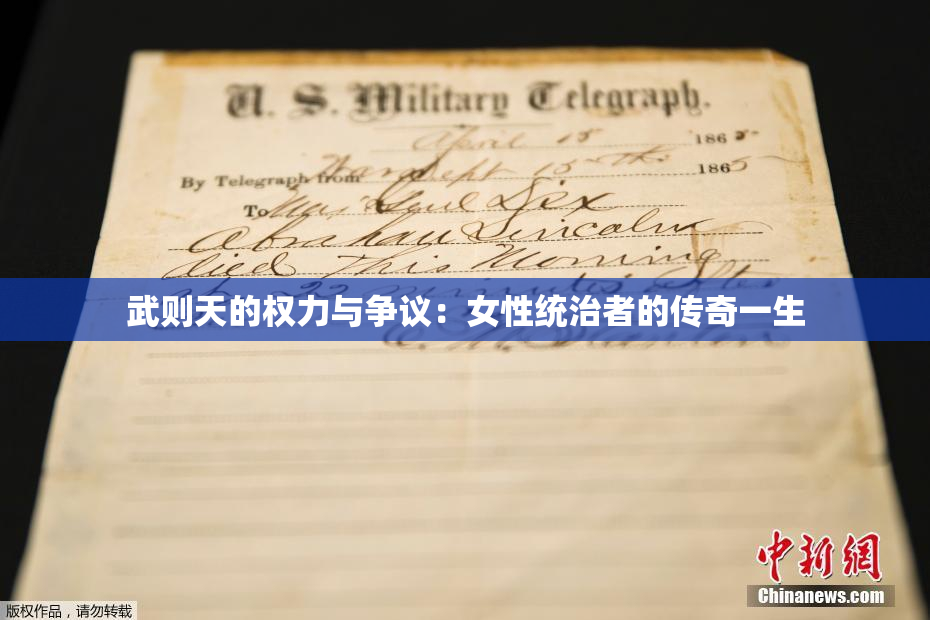 U. S. Military Telegraph.
April 15 1865
By Telegraph from War Dept 15th 1865
To Maj Genl Dix
Abraham Lincoln
died This Morning
at 22 minutes after
武则天的权力与争议：女性统治者的传奇一生
E. M. Stanton
中新網
Chinanews.com
版权作品，请勿转载